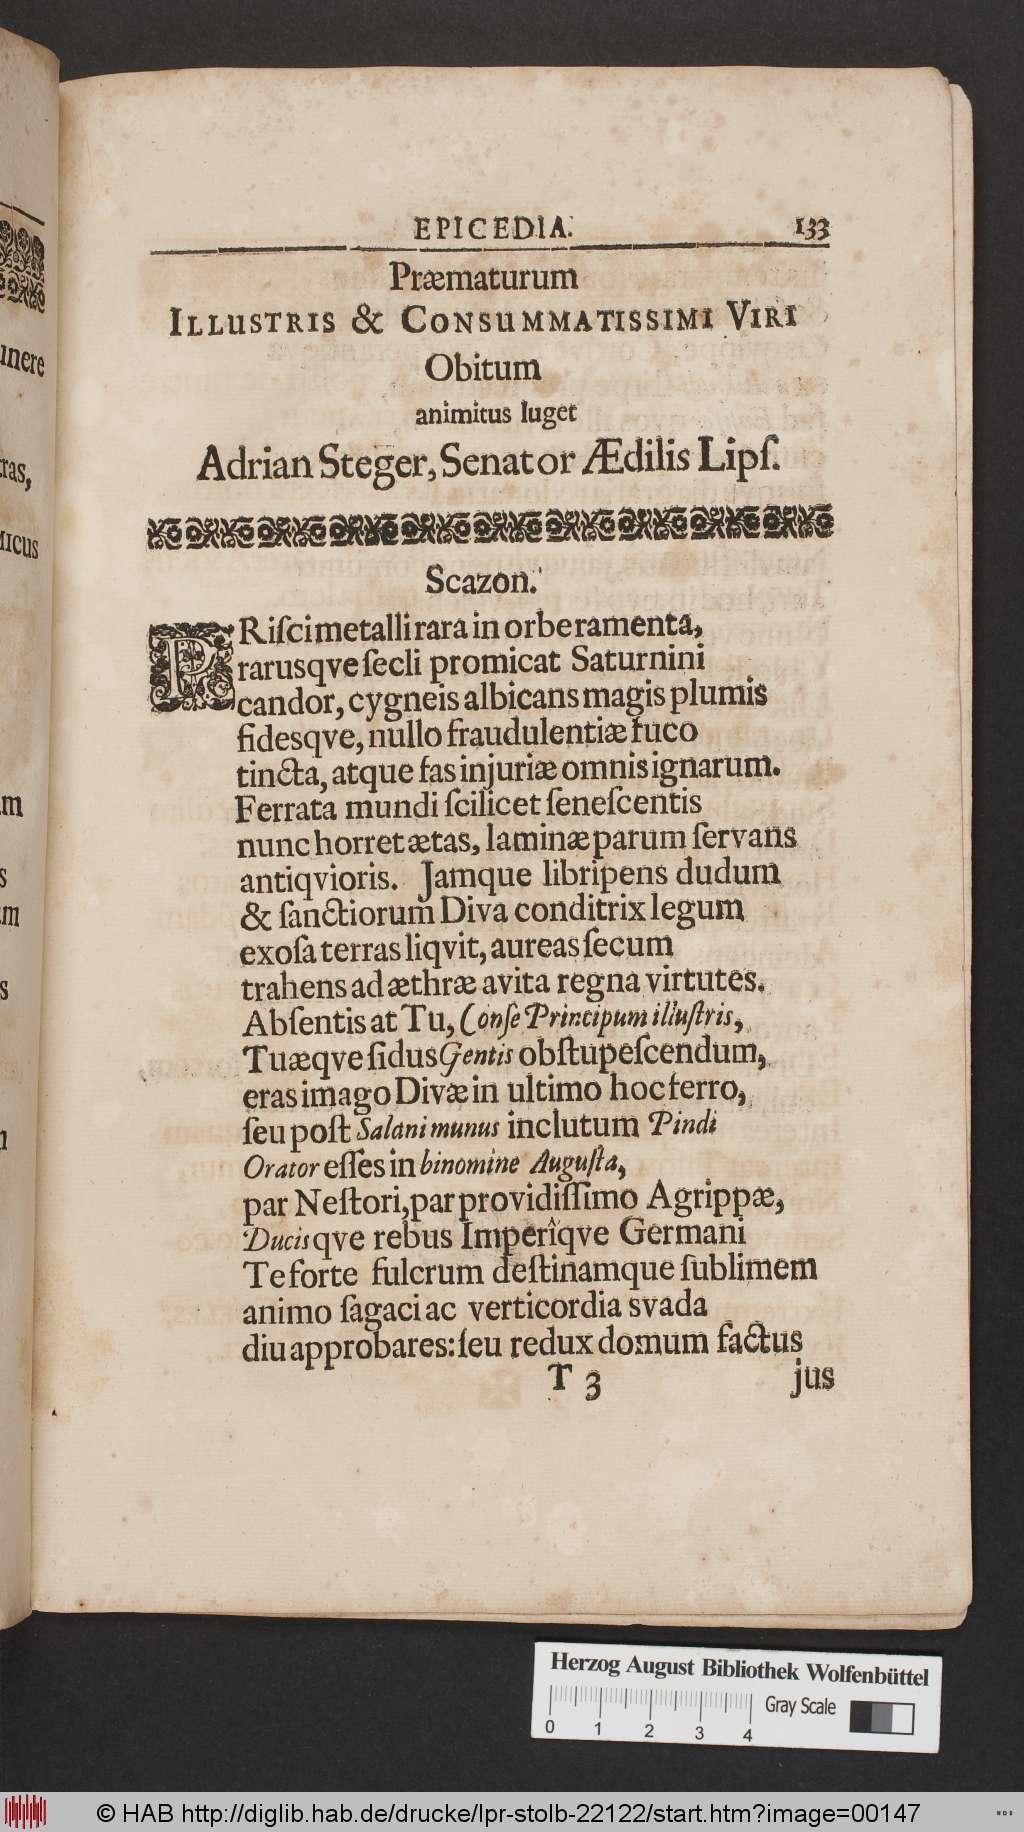 EPICEDIA. 133
Præmaturum
ILLUSTRIS & CONSUMMATISSIMI VIRI
Obitum
animitus luget
Adrian Steger, Senator Ædilis Lipſ.
Scazon.
PRiſci metalli rara in orbe ramenta,
rarusqve ſecli promicat Saturnini
candor, cygneis albicans magis plumis
fidesqve, nullo fraudulentiæ fuco
tincta, atque fas injuriæ omnis ignarum.
Ferrata mundi ſcilicet ſeneſcentis
nunc horret ætas, laminæ parum ſervans
antiqvioris. Jamque libripens dudum
& ſanctiorum Diva conditrix legum
exoſa terras liqvit, aureas ſecum
trahens ad æthræ avita regna virtutes.
Abſentis at Tu, Conſe Principum illuſtris,
Tuæqve ſidus Gentis obſtupeſcendum,
eras imago Divæ in ultimo hoc ferro,
ſeu poſt Salani munus inclutum Pindi
Orator eſſes in binomine Auguſta,
par Neſtori, par providiſſimo Agrippæ,
Ducisqve rebus Imperîqve Germani
Te forte fulcrum deſtinamque ſublimem
animo ſagaci ac verticordia svada
diu approbares: ſeu redux domum factus
T 3 jus
unere
ras,
MICUS
m
s
m
s
Herzog August Bibliothek Wolfenbüttel
0 1 2 3 4 Gray Scale
© HAB http://diglib.hab.de/drucke/lpr-stolb-22122/start.htm?image=00147